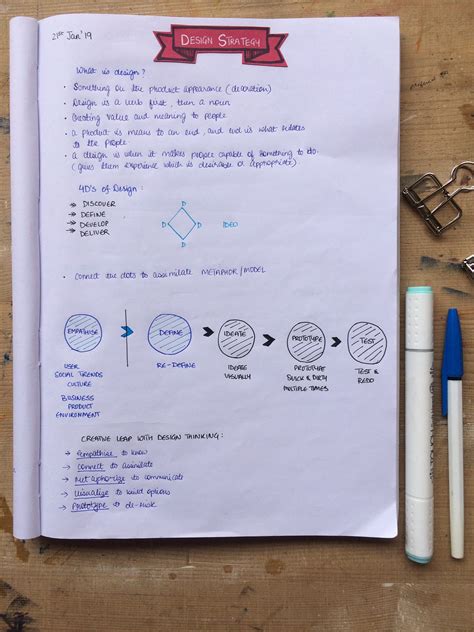 21st Jan'19
DESIGN STRATEGY
What is design?
• Something on the product appearance (decoration)
• Design is a verb first, then a noun
• Creating value and meaning to people
• a product is means to an end, and end is what relates
to the people
• a design is when it makes people capable of something to do.
(gives them experience which is desirable & appropriate).
4D's of Design:
→ DISCOVER
→ DEFINE
→ DEVELOP
→ DELIVER
D
D D
D
IDEO
• Connect the dots to assimilate METAPHOR/MODEL
EMPATHISE > DEFINE > IDEATE > PROTOTYPE > TEST
USER
SOCIAL TRENDS
CULTURE
BUSINESS
PRODUCT
ENVIRONMENT
RE-DEFINE
IDEATE
VISUALLY
PROTOTYPE
QUICK & DIRTY
MULTIPLE TIMES
TEST &
REDO
CREATIVE LEAP WITH DESIGN THINKING:
→ Empathise to know
→ Connect to assimilate
→ Metaphorize to communicate
→ Visualize to build options
→ Prototype to de-risk